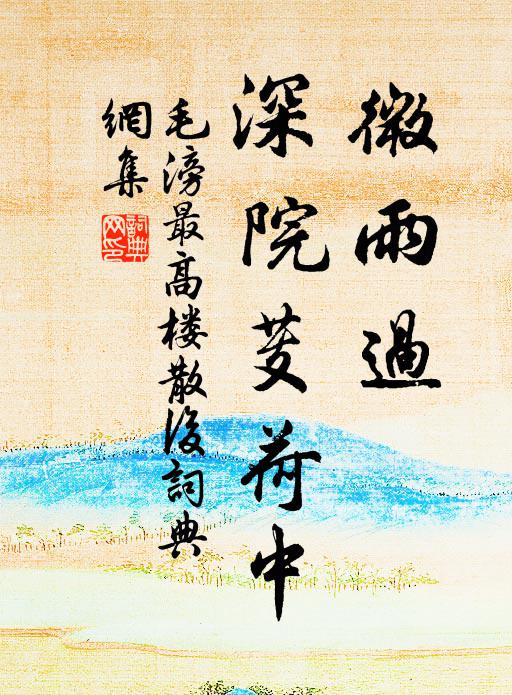 微雨過
深院芰荷中
毛滂最高楼散後詞典
網集
詞典
网印